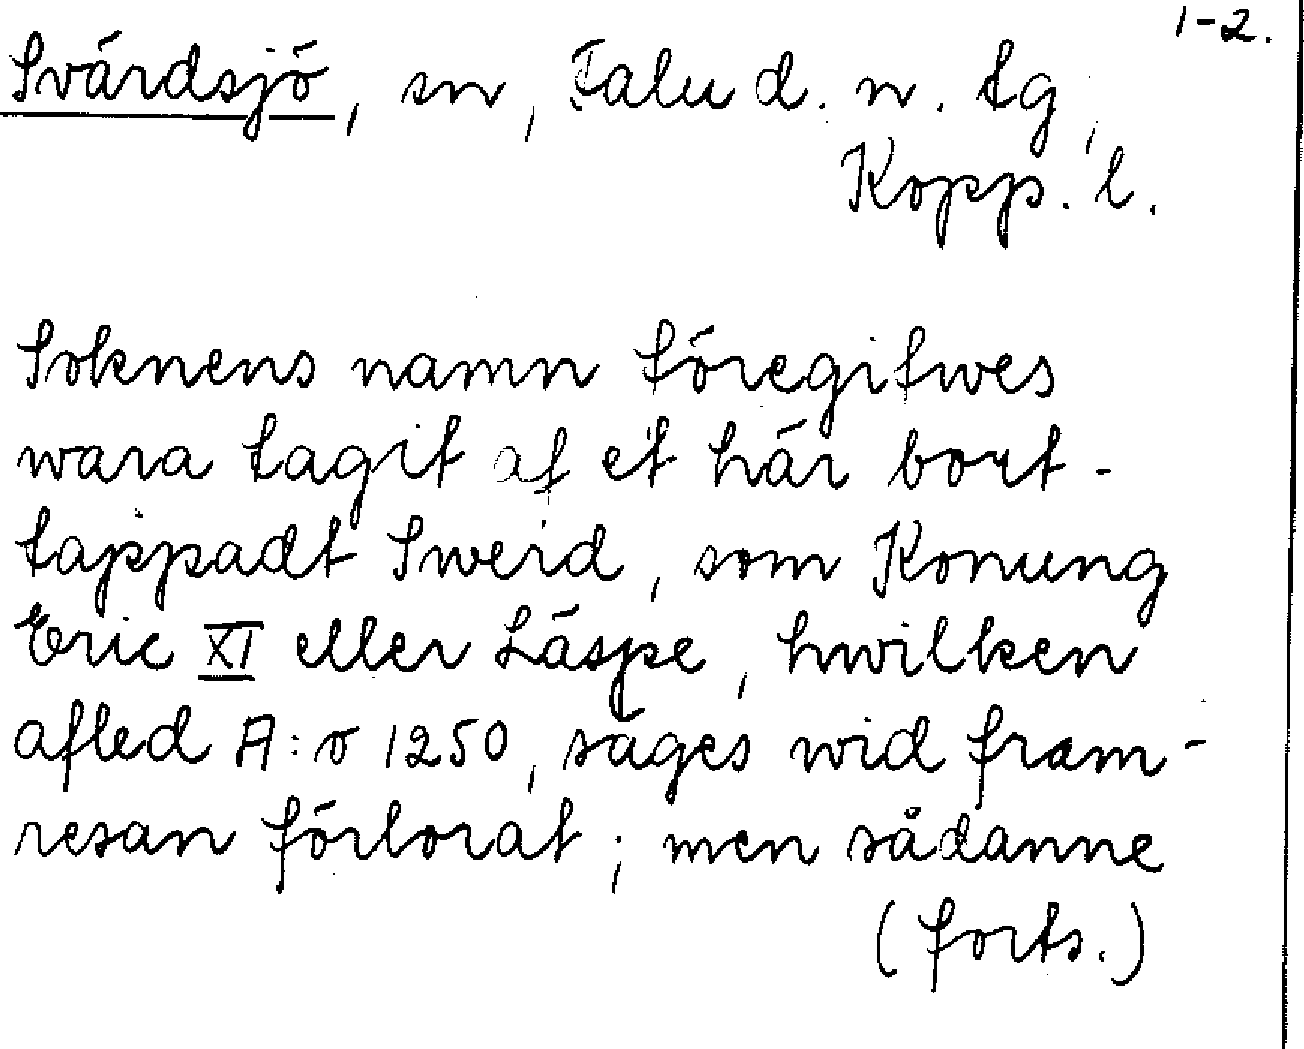 1-2.
Svärdsjö, sn, Falu d. n. tg,
Kopp. l.
Soknens namn föregifwes
wara tagit af et här bort-
tappadt Swerd, som Konung
Eric XI eller Läspe, hwilken
afled A:o 1250, säges wid fram-
resan förlorat; men sådanne
(forts.)